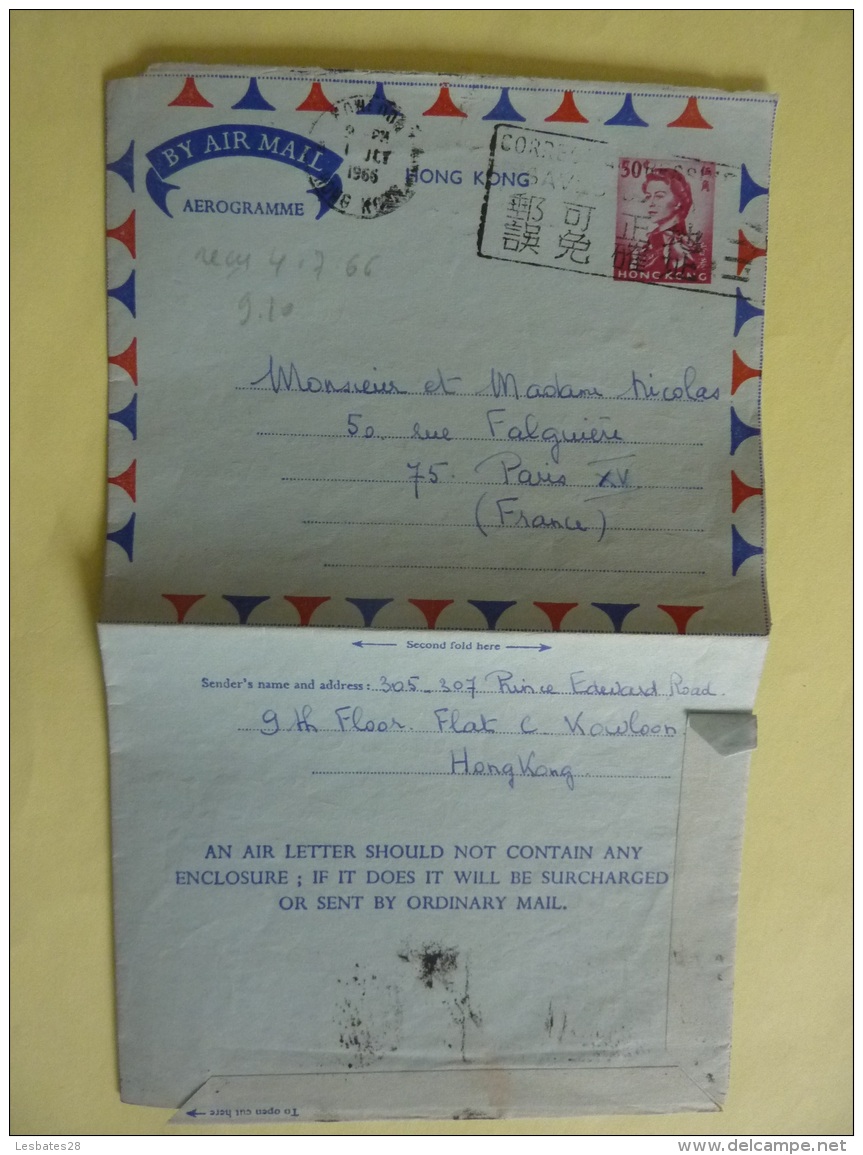 BY AIR MAIL
AEROGRAMME
KOWLOON
PM
1 OCT
1966
HONG KONG
CORRECT
SAVES
郵 可 正
誤 免 確
50¢
HONG KONG
4.7 66
9.20
Monsieur et Madame Nicolas
50 rue Falguière
75. Paris XV
(France)
Second fold here
Sender's name and address: 305-307 Prince Edward Road
9th Floor. Flat C Kowloon
Hong Kong
AN AIR LETTER SHOULD NOT CONTAIN ANY
ENCLOSURE ; IF IT DOES IT WILL BE SURCHARGED
OR SENT BY ORDINARY MAIL.
To open cut here
Lesbates28
www.delcampe.net